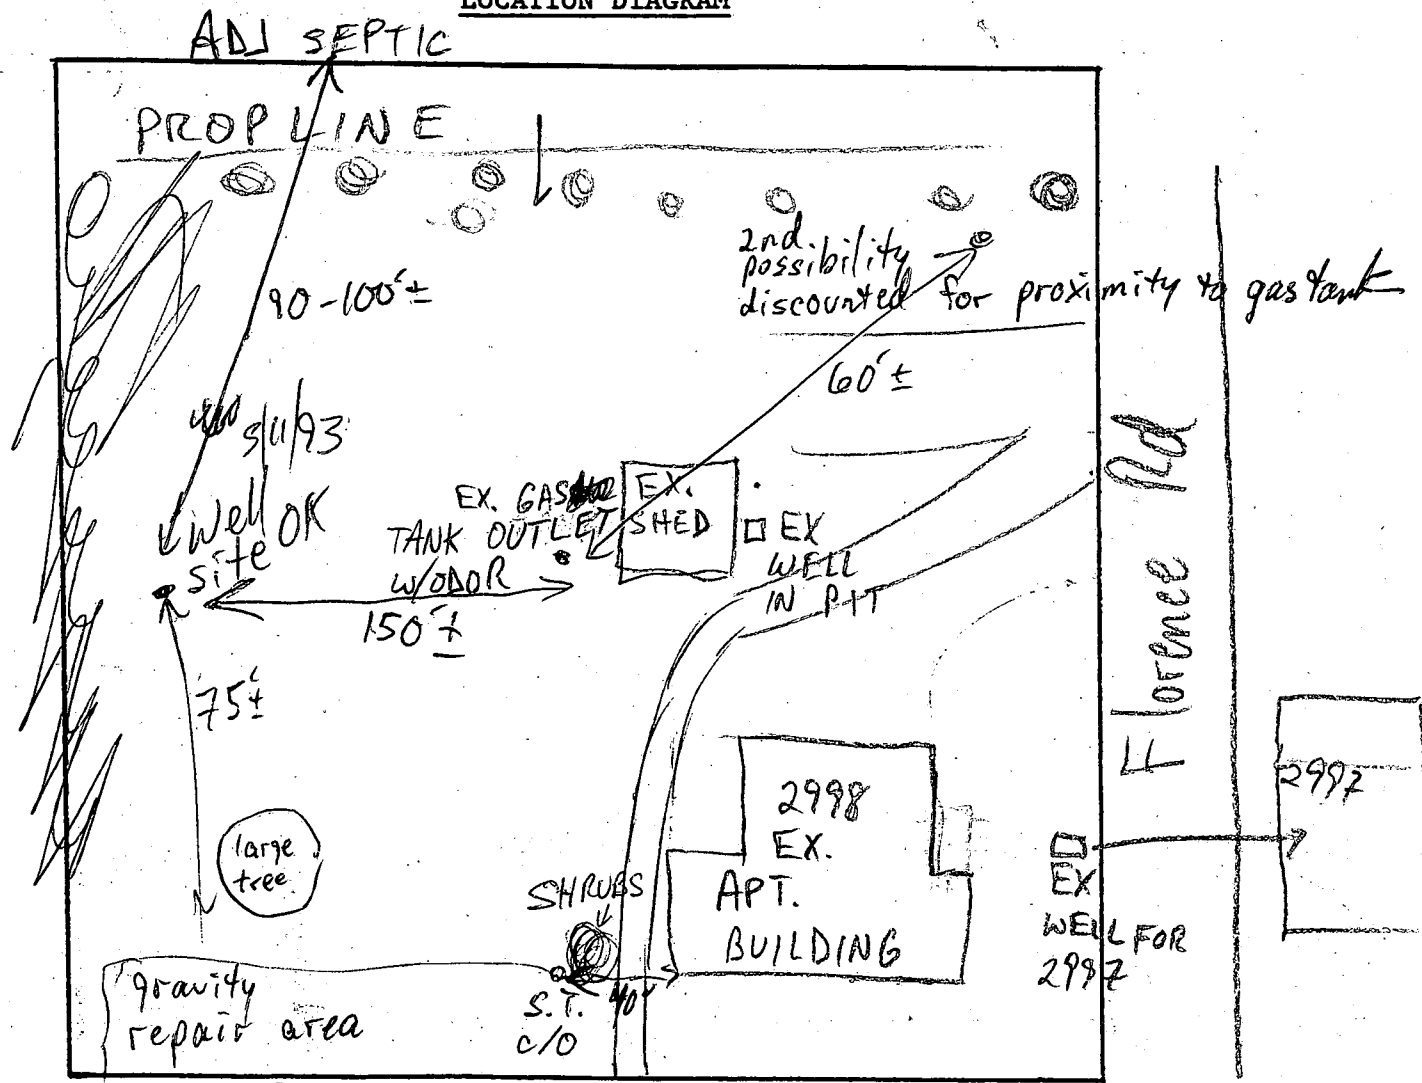 LOCATION DIAGRAM
ADJ SEPTIC
PROP LINE
90-100'±
2nd
possibility
discounted for proximity to gas tank
60'±
5/11/93
Well OK
site
EX. GAS
TANK OUTLET
W/ODOR
150'±
EX.
SHED
EX
WELL
IN PIT
Florence Rd
75'±
large
tree
2998
EX.
APT.
BUILDING
2997
SHRUBS
EX
WELL FOR
2997
gravity
repair area
S.T. 40'
c/o